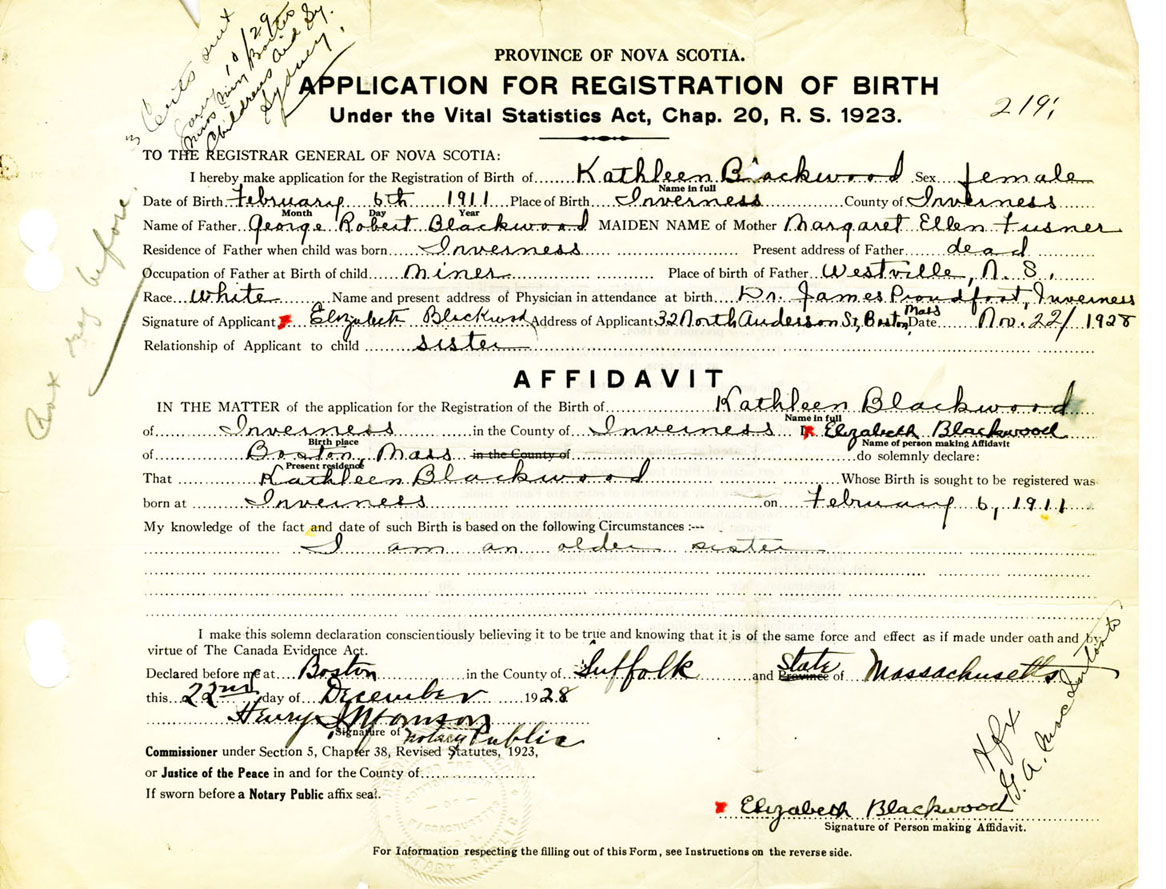 Certs sent
10/29
Childrens Aid Sy.
Sydney.
PROVINCE OF NOVA SCOTIA.
APPLICATION FOR REGISTRATION OF BIRTH
Under the Vital Statistics Act, Chap. 20, R. S. 1923.
219
TO THE REGISTRAR GENERAL OF NOVA SCOTIA:
I hereby make application for the Registration of Birth of Kathleen Blackwood Sex female
Name in full
Date of Birth February 6th 1911 Place of Birth Inverness County of Inverness
Month Day Year
Name of Father George Robert Blackwood MAIDEN NAME of Mother Margaret Ellen Fusner
Residence of Father when child was born Inverness Present address of Father dead
Occupation of Father at Birth of child miner Place of birth of Father Westville, N. S.
Race White Name and present address of Physician in attendance at birth Dr. James Proudfoot, Inverness
Signature of Applicant Elizabeth Blackwood Address of Applicant 32 North Anderson St, Boston, Mass Date Nov. 22/ 1928
Relationship of Applicant to child sister
before
AFFIDAVIT
IN THE MATTER of the application for the Registration of the Birth of Kathleen Blackwood
Name in full
of Inverness in the County of Inverness I, Elizabeth Blackwood
Birth place Name of person making Affidavit
of Boston, Mass in the County of do solemnly declare:
Present residence
That Kathleen Blackwood Whose Birth is sought to be registered was
born at Inverness on February 6, 1911
My knowledge of the fact and date of such Birth is based on the following Circumstances :---
I am an older sister
I make this solemn declaration conscientiously believing it to be true and knowing that it is of the same force and effect as if made under oath and by
virtue of The Canada Evidence Act.
Declared before me at Boston in the County of Suffolk and Province State of Massachusetts
this 22nd day of December 1928
Henry
Signature of Notary Public
Commissioner under Section 5, Chapter 38, Revised Statutes, 1923,
or Justice of the Peace in and for the County of
If sworn before a Notary Public affix seal.
Hfx
G. A. Mac
Elizabeth Blackwood
Signature of Person making Affidavit.
For Information respecting the filling out of this Form, see Instructions on the reverse side.